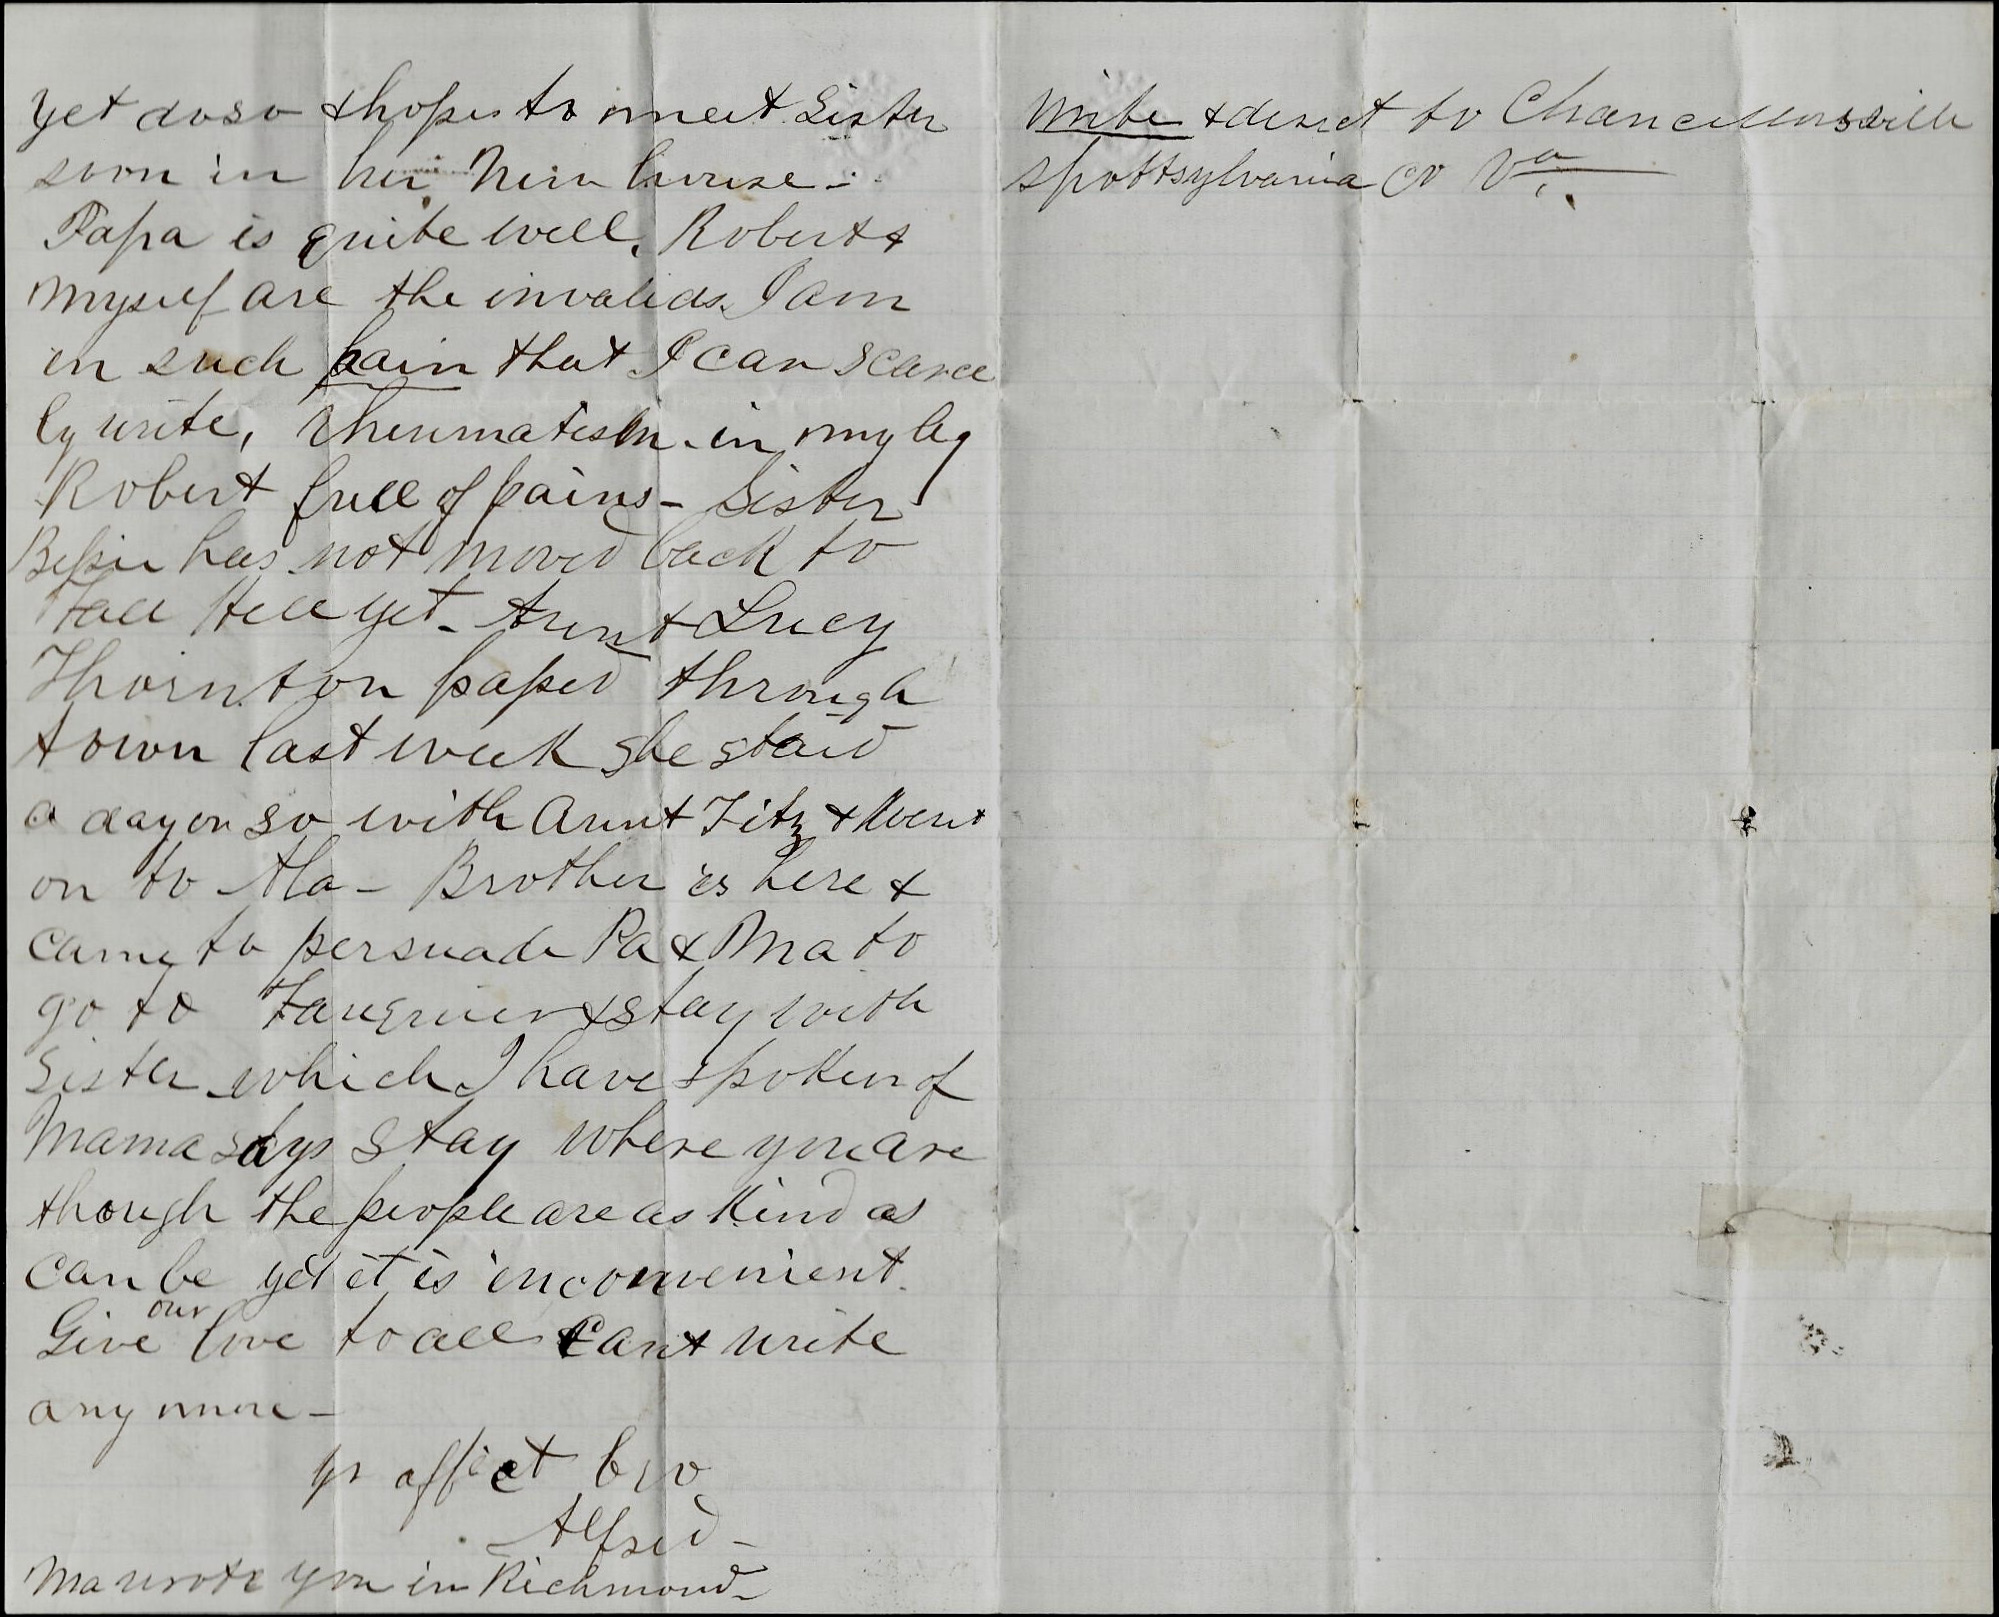 yet do so & hopes to meet Sister
soon in her New house -
Papa is quite well, Robert &
myself are the invalids. I am
in such pain that I can scarce
ly write, rheumatism in my leg
Robert full of pains - Sister
Bessie has not moved back to
Fall Hill yet - Aunt Lucy
Thornton passed through
town last week she staid
a day or so with Aunt Fitz & went
on to Ala - Brother is here &
came to persuade Pa & Ma to
go to Fauquier & stay with
Sister which I have spoken of
Mama says stay where you are
though the people are as kind as
can be yet it is inconvenient.
Give our love to all Cant write
any more -
yr affect bro
Alfred -
Ma wrote you in Richmond -
Write & direct to Chancellorsville
Spottsylvania Co Va